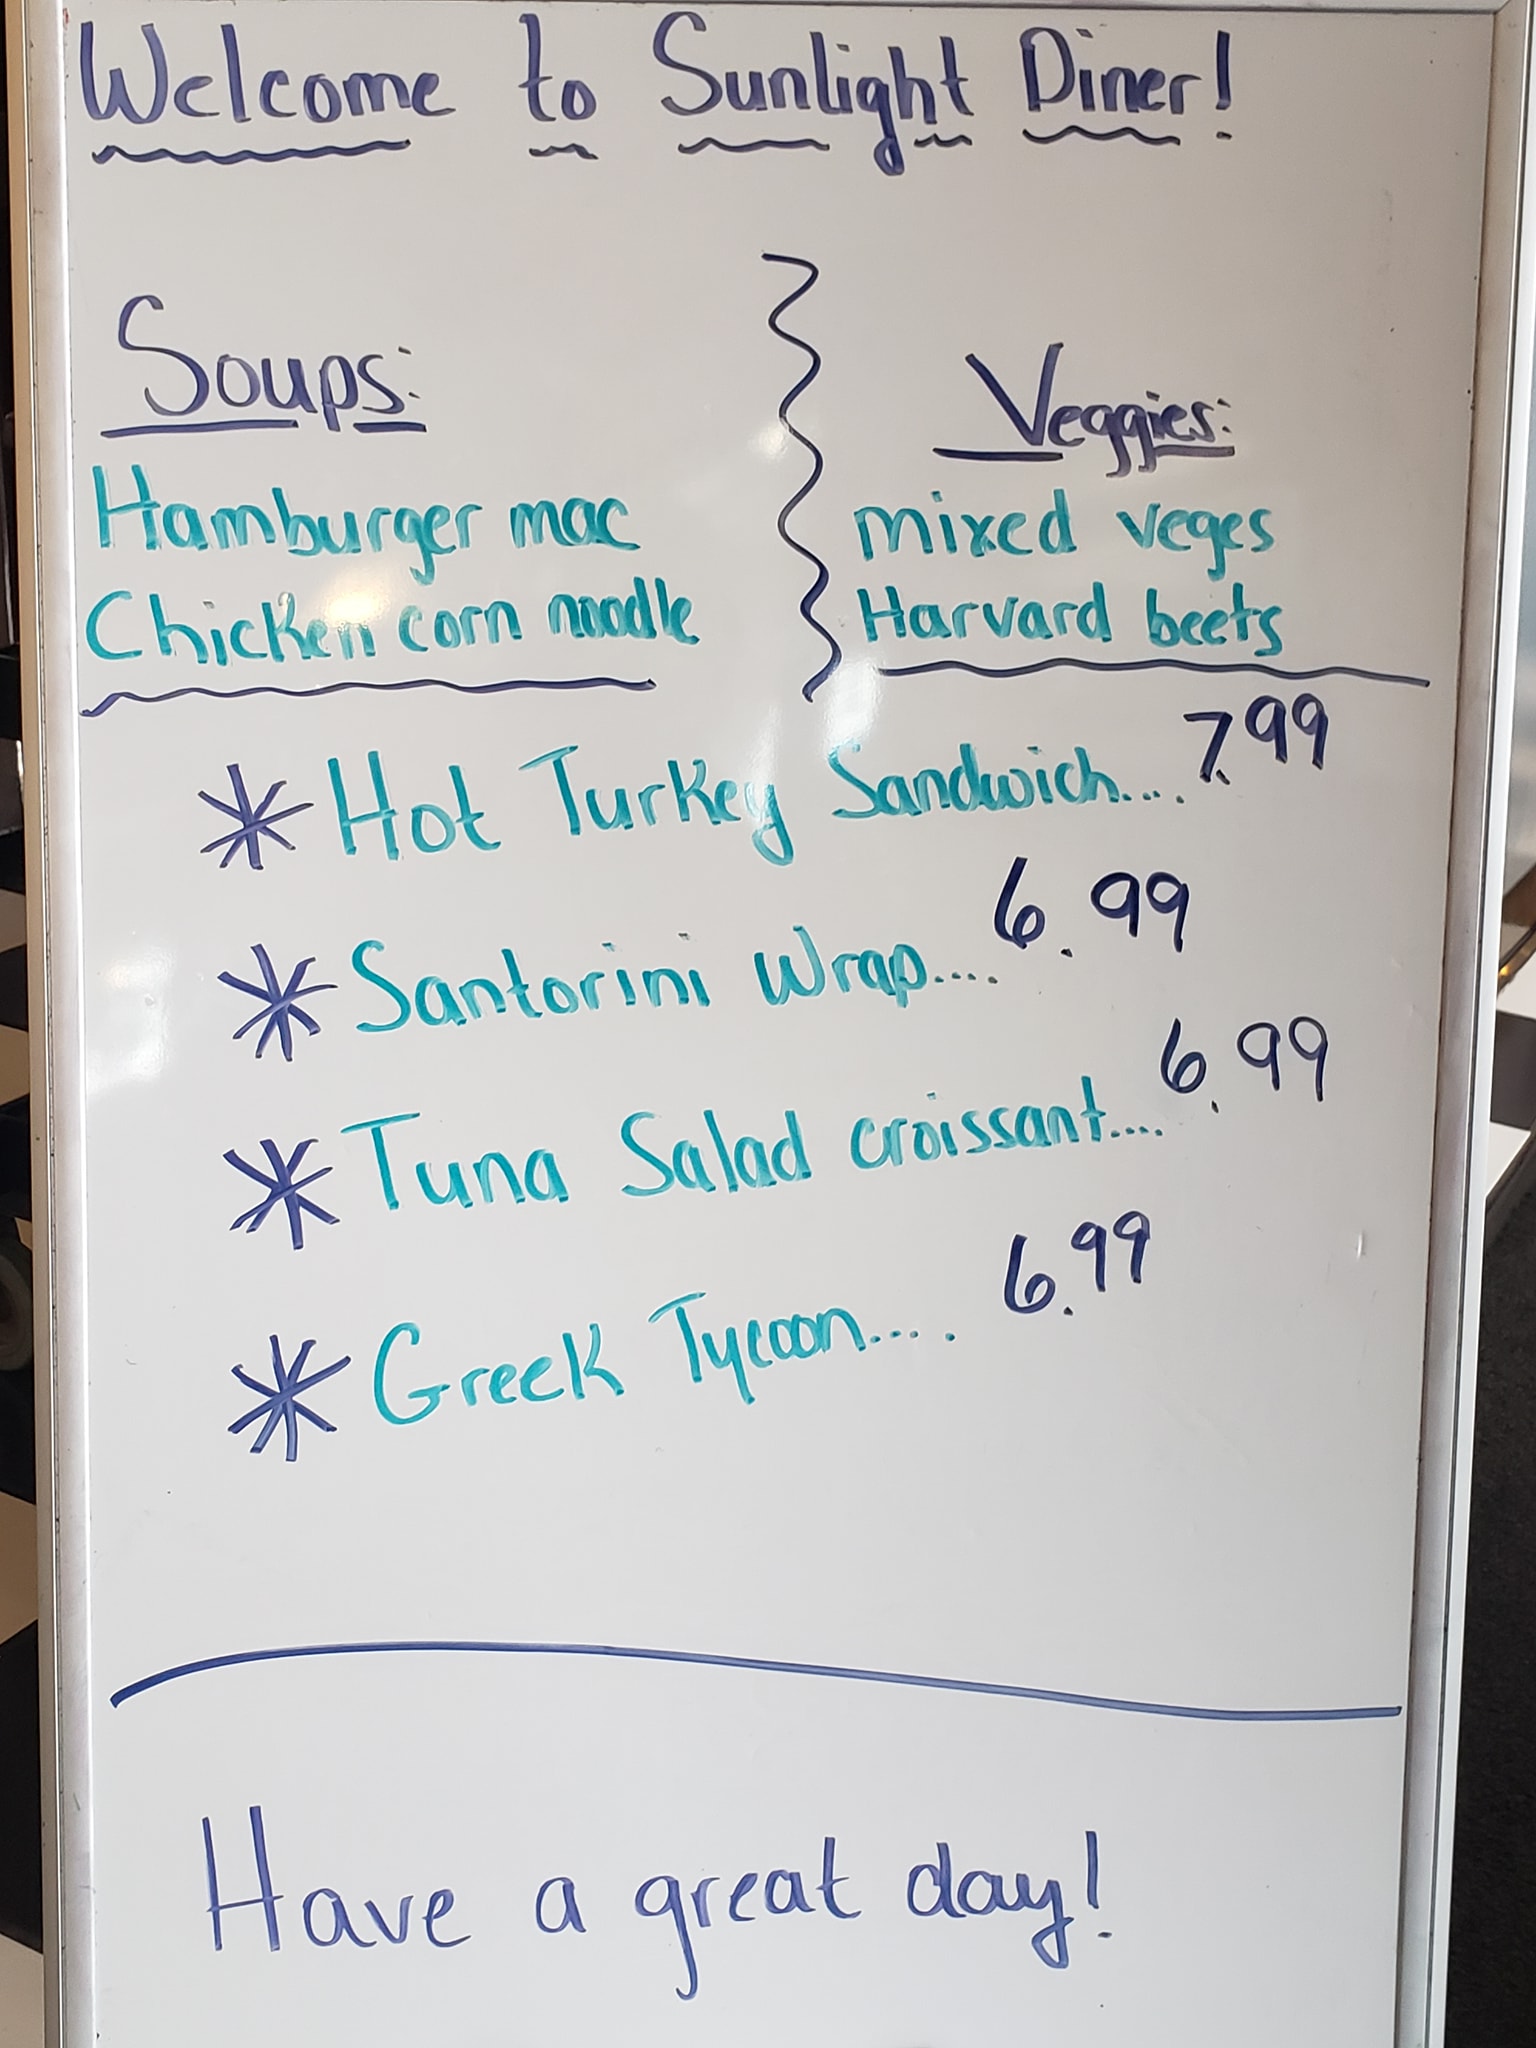 Welcome to Sunlight Diner!
Soups:
Hamburger mac
Chicken corn noodle
Veggies:
mixed veges
Harvard beets
* Hot Turkey Sandwich.... 7.99
* Santorini Wrap.... 6.99
* Tuna Salad croissant.... 6.99
* Greek Tycoon.... 6.99
Have a great day!